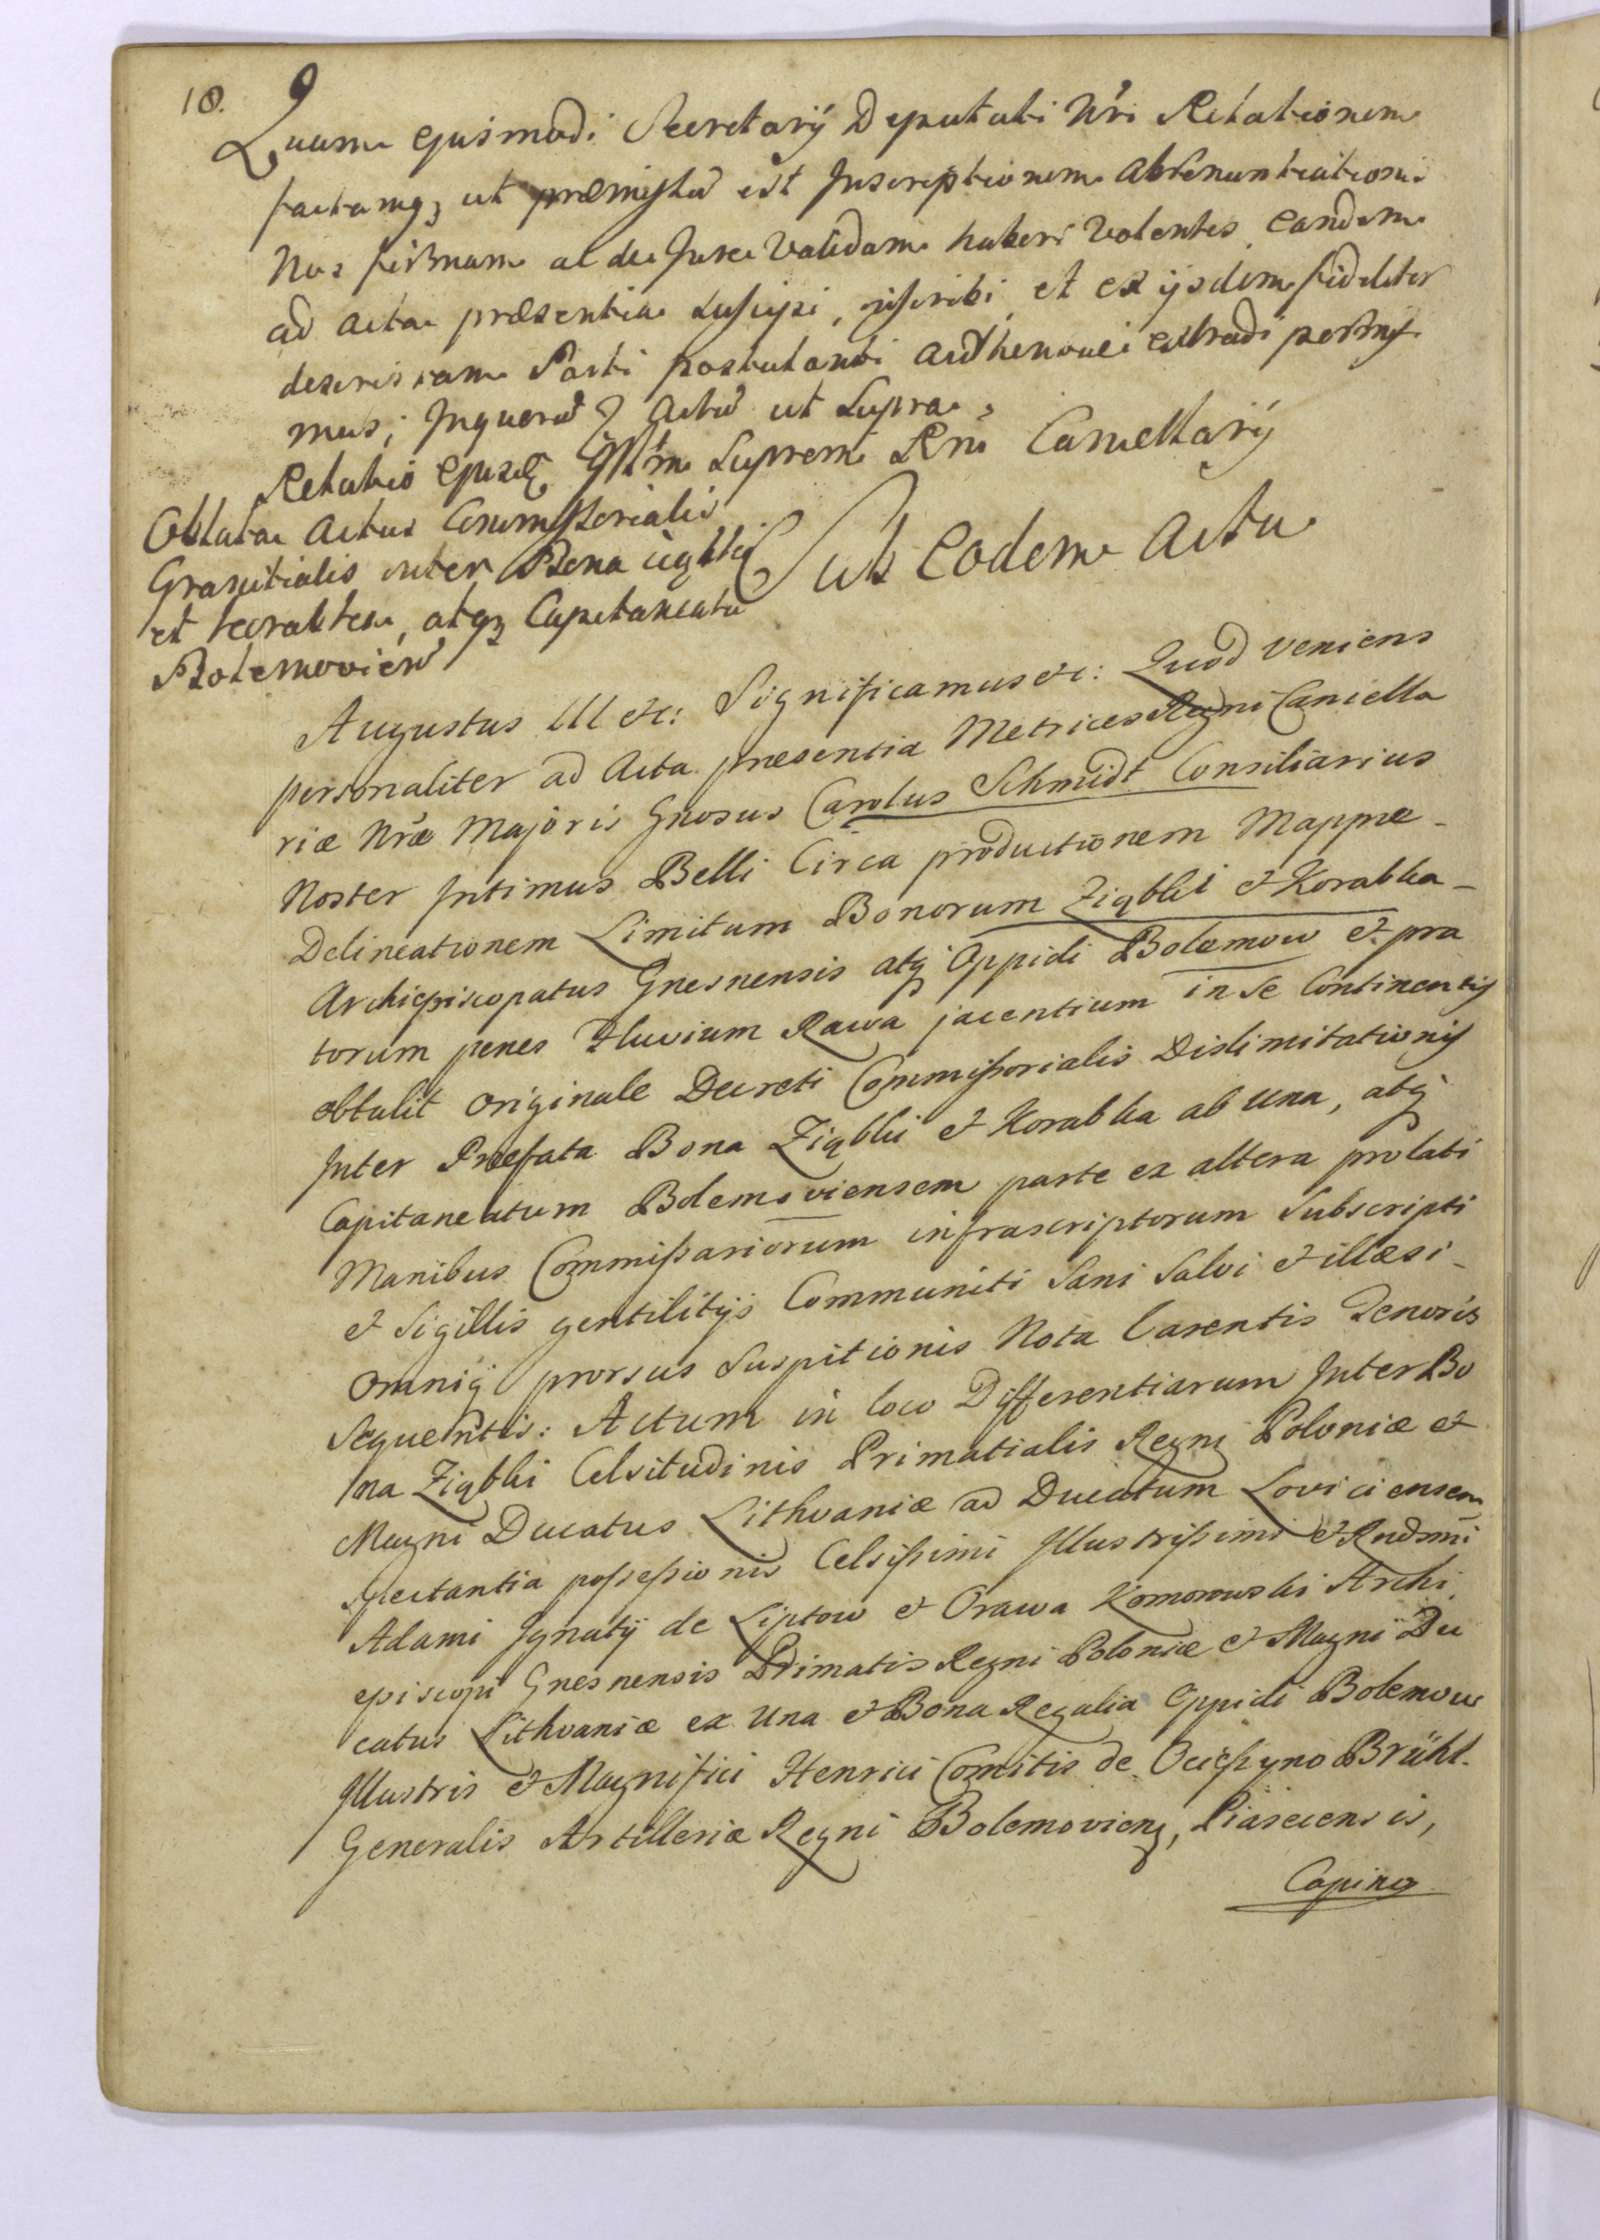 18. 9
Quam ejusmodi Secretarÿ Deputati Nri Relationem
factamq, ut præmissũ est Inscriptionem abrenuntiationis
Nos firmam ac de Jure validam haberi Volentes eandem
ad acta præsentia suscipi, inscribi, et ex ijsdem fideliter
descriptam Parti postulanti authentice extradi permis
mus; In querũ actũ ut supra.
Relatio ejusdẽ Illm̃i Supremi Rni Cancellarÿ
Oblata actus Commissorialis
Granitialis inter Bona Ziąbki
et Korabka, atq Capitaneatũ
Bolemovien̄
Sub eodem actu
Augustus III etc: Significamus etc: Quod veniens
personaliter ad Acta præsentia Metrices Regni Cancella
riæ Nræ Majoris Gnosus Carolus Schmidt Consiliarius
Noster Intimus Belli Circa productionem Mappæ
Delineationem Limitum Bonorum Ziąbki et Korabka
Archiepiscopatus Gnesnensis atq Oppidi Bolemow et pra
torum penes Fluvium Rawa jacentium in se Continentis
obtulit originale Decreti Commissorialis Dislimitationis
Inter Præfata Bona Ziąbki et Korabka ab una, atq
Capitaneatum Bolemoviensem parte ex altera prolati
Manibus Commissariorum infrascriptorum Subscripti
et Sigillis gentilitijs Communiti Sani Salvi et illæsi
omniq prorsus Suspitionis Nota Carentis Tenoris
Sequentis: Actum in loco Differentiarum Inter Bo
na Ziąbki Celsitudinis Primatialis Regni Poloniæ et
Magni Ducatus Lithvaniæ ad Ducatum Loviciensem
spectantia possessionis Celsissimi Illustrissimi et Rndmi
Adami Ignatÿ de Liptow et Orawa Komorowski Archi
episcopi Gnesnensis Primatis Regni Poloniæ et Magni Du
catus Lithvaniæ ex Una et Bona Regalia Oppidi Bolemow
Illustris et Magnifici Henrici Comitis de Ocieszyno Brühl
Generalis Artilleriæ Regni Bolemovien, Piasecensis,